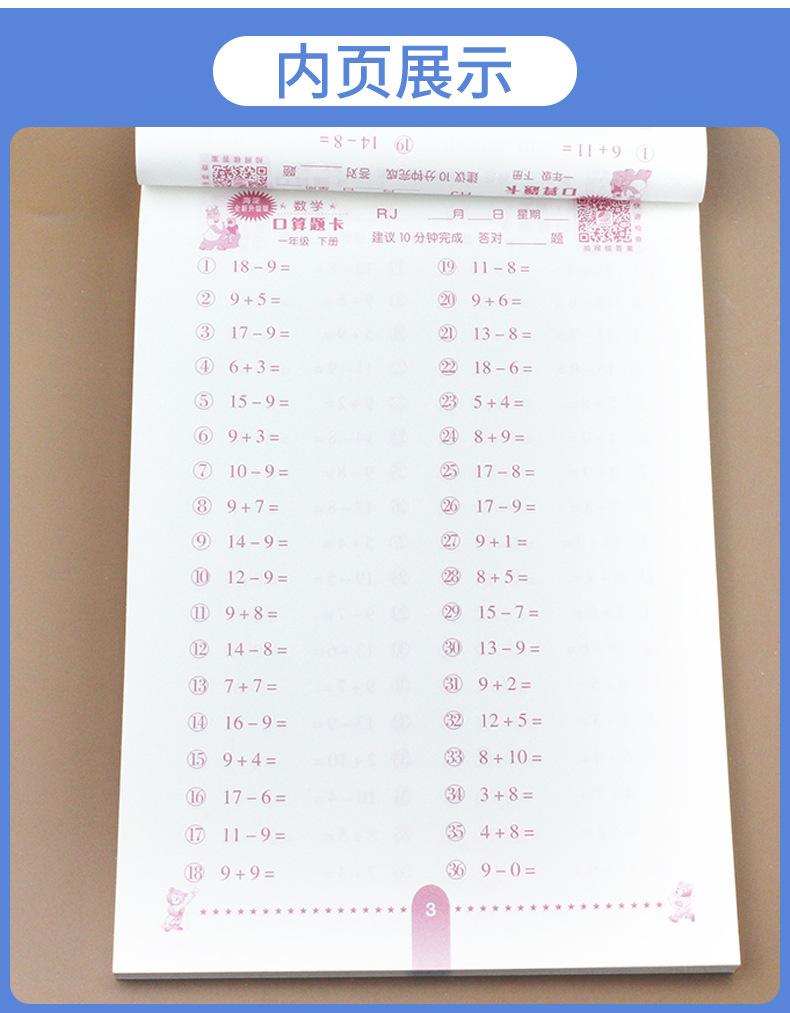 内页展示
① 6+11=
⑲ 14-8=
口算题卡
一年级 下册
建议 10 分钟完成 答对______题
全新升级版
★ 数学 ★
RJ ____月____日 星期____
口算题卡
一年级 下册 建议 10 分钟完成 答对______题
拍照核答案
① 18-9= ⑲ 11-8=
② 9+5= ⑳ 9+6=
③ 17-9= ㉑ 13-8=
④ 6+3= ㉒ 18-6=
⑤ 15-9= ㉓ 5+4=
⑥ 9+3= ㉔ 8+9=
⑦ 10-9= ㉕ 17-8=
⑧ 9+7= ㉖ 17-9=
⑨ 14-9= ㉗ 9+1=
⑩ 12-9= ㉘ 8+5=
⑪ 9+8= ㉙ 15-7=
⑫ 14-8= ㉚ 13-9=
⑬ 7+7= ㉛ 9+2=
⑭ 16-9= ㉜ 12+5=
⑮ 9+4= ㉝ 8+10=
⑯ 17-6= ㉞ 3+8=
⑰ 11-9= ㉟ 4+8=
⑱ 9+9= ㊱ 9-0=
3